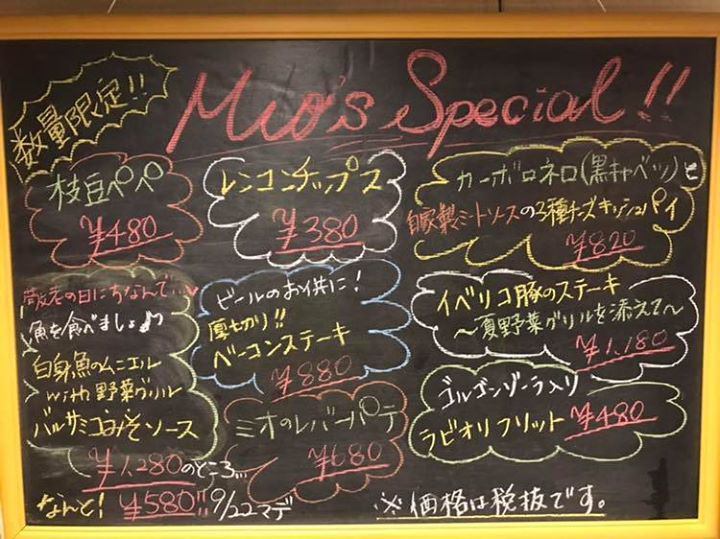 数量限定!!
Mio's Special!!
枝豆ペペ
¥480
レンコンチップス
¥380
カーボロネロ(黒キャベツ)と
自家製ミートソースの3種チーズキッシュパイ
¥820
敬老の日にちなんで…♥
魚を食べましょ♪
白身魚のムニエル
with 野菜グリル
バルサミコみそソース
¥1,280のところ…
なんと! ¥580!! 9/22マデ
ビールのお供に!
厚切り!!
ベーコンステーキ
¥880
ミオのレバーパテ
¥680
イベリコ豚のステーキ
〜夏野菜グリルを添えて〜
¥1,180
ゴルゴンゾーラ入り
ラビオリフリット ¥480
※価格は税抜です。